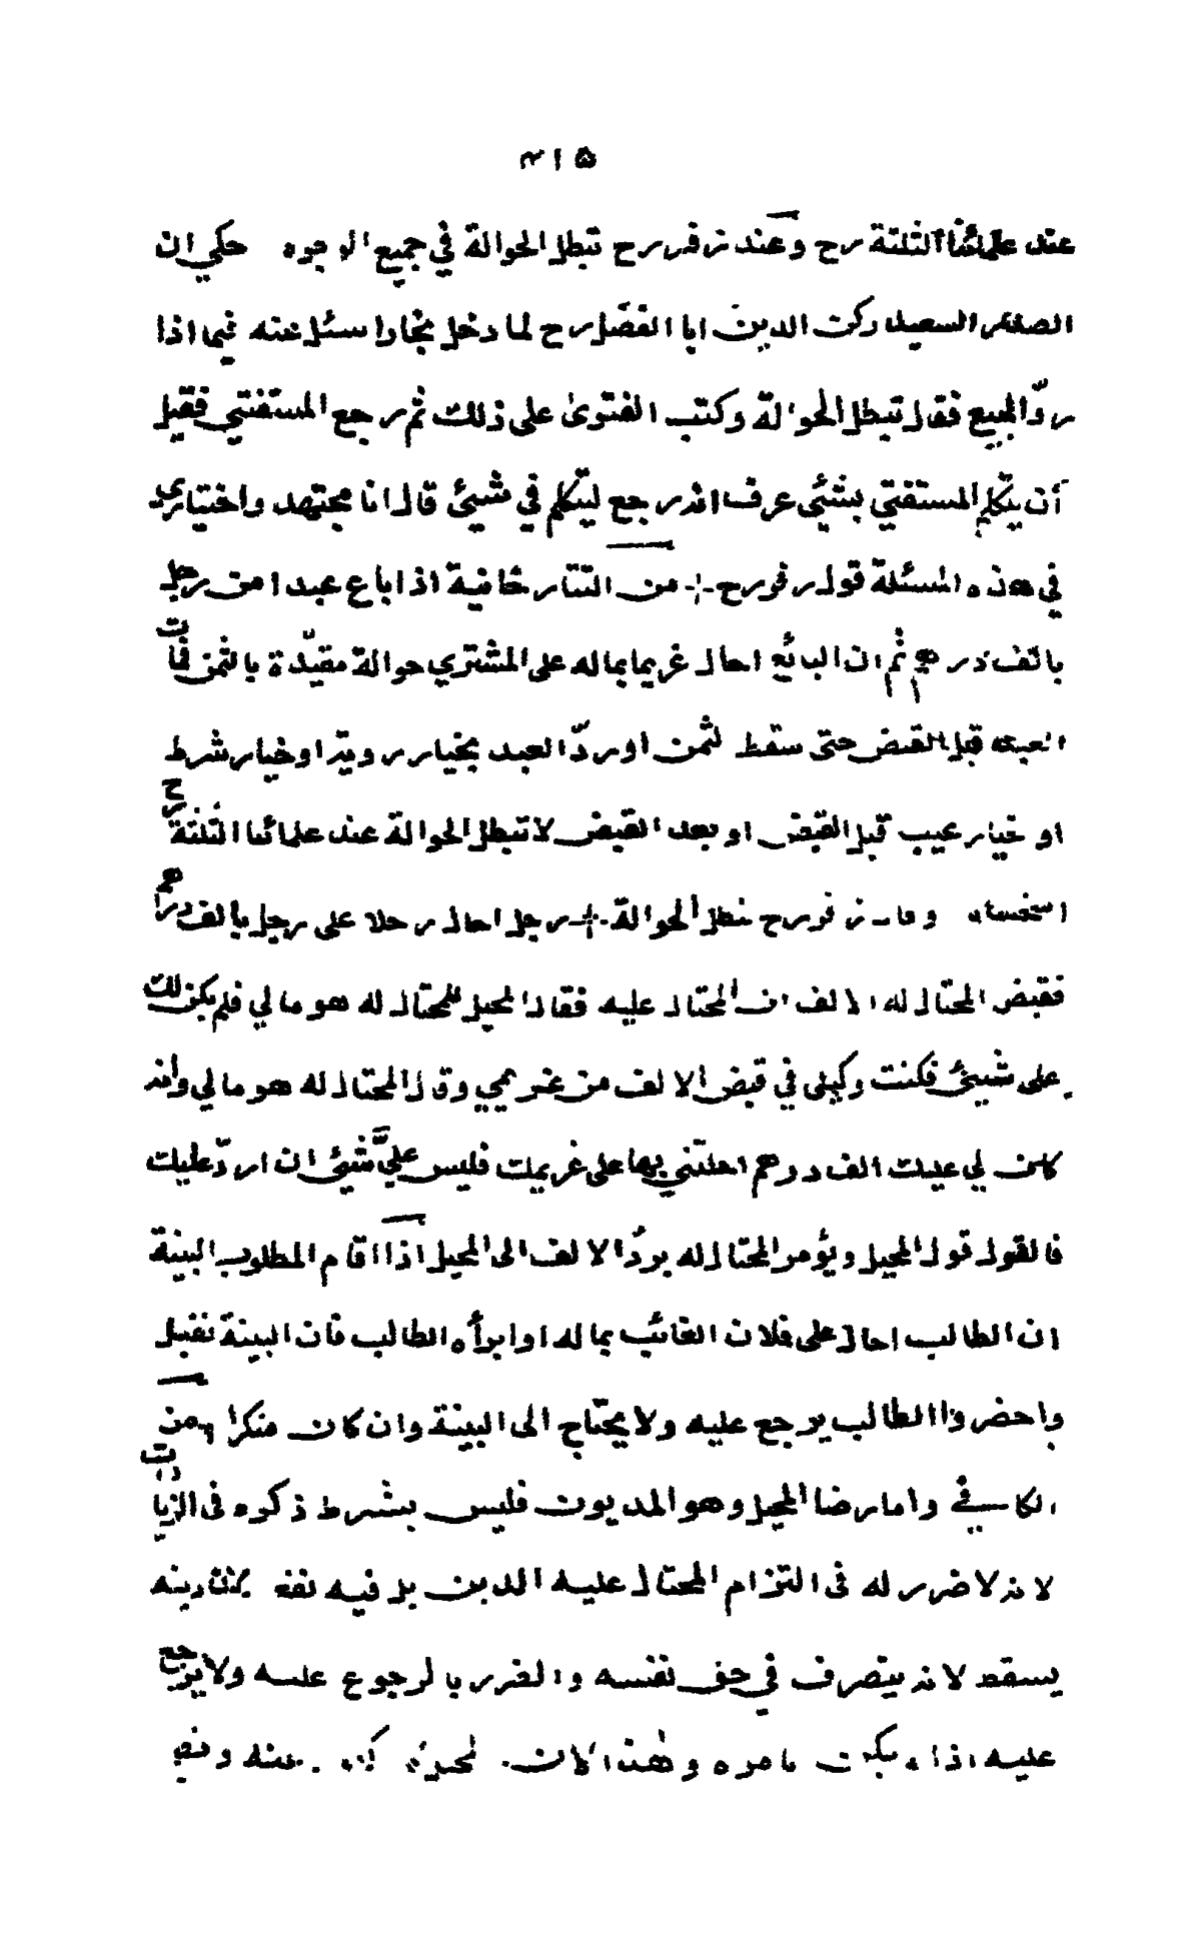 ٣١٥
عند علمائنا الثلثة رح وعند زفر رح تبطل الحوالة في جميع الوجوه حكي ان
الصدر السعيد ركن الدين ابا الفضل رح لما دخل بخارا سئل عنه فيما اذا
ردّ المبيع فقال تبطل الحوالة وكتب الفتوى على ذلك ثم رجع المستفتي فقيل
أن يتكلم المستفتي بشيئ عرف انه رجع ليتكلم في شيئ قال انا مجتهد واختياري
في هذه المسئلة قول زفر رح من التتار خانية اذا باع عبدا من رجل
بالف درهم ثم ان البائع احال غريما بماله على المشتري حوالة مقيّدة بالثمن فمات
العبد قبل القبض حتى سقط الثمن او ردّ العبد بخيار روية او خيار شرط
او خيار عيب قبل القبض او بعد القبض لا تبطل الحوالة عند علمائنا الثلثة رح
استحسانا وقال زفر رح تبطل الحوالة رجل احال رجلا على رجل بالف درهم
فقبض المحتال له الالف من المحتال عليه فقال المحيل للمحتال له هو مالي فلم يكن لك
على شيئ فكنت وكيلي في قبض الالف من غريمي وقال المحتال له هو مالي وانه
كان لي عليك الف درهم احلتني بها على غريمك فليس عليَّ شيئ ان اردّ عليك
فالقول قول المحيل ويؤمر المحتال له بردّ الالف الى المحيل اذا اقام المطلوب البينة
ان الطالب احال على فلان الغائب بماله او ابرأه الطالب فان البينة تقبل
واحضروا الطالب يرجع عليه ولا يحتاج الى البينة وان كان منكرا من
الكافي واما رضا المحيل وهو المديون فليس بشرط ذكره في الزيادات
لانه لا ضرر له في التزام المحتال عليه الدين بل فيه نفعه دينه
يسقط لانه يتصرف في حق نفسه والضرر بالرجوع عليه ولا يرجع
عليه اذا لم يكن بامره وهذا لان